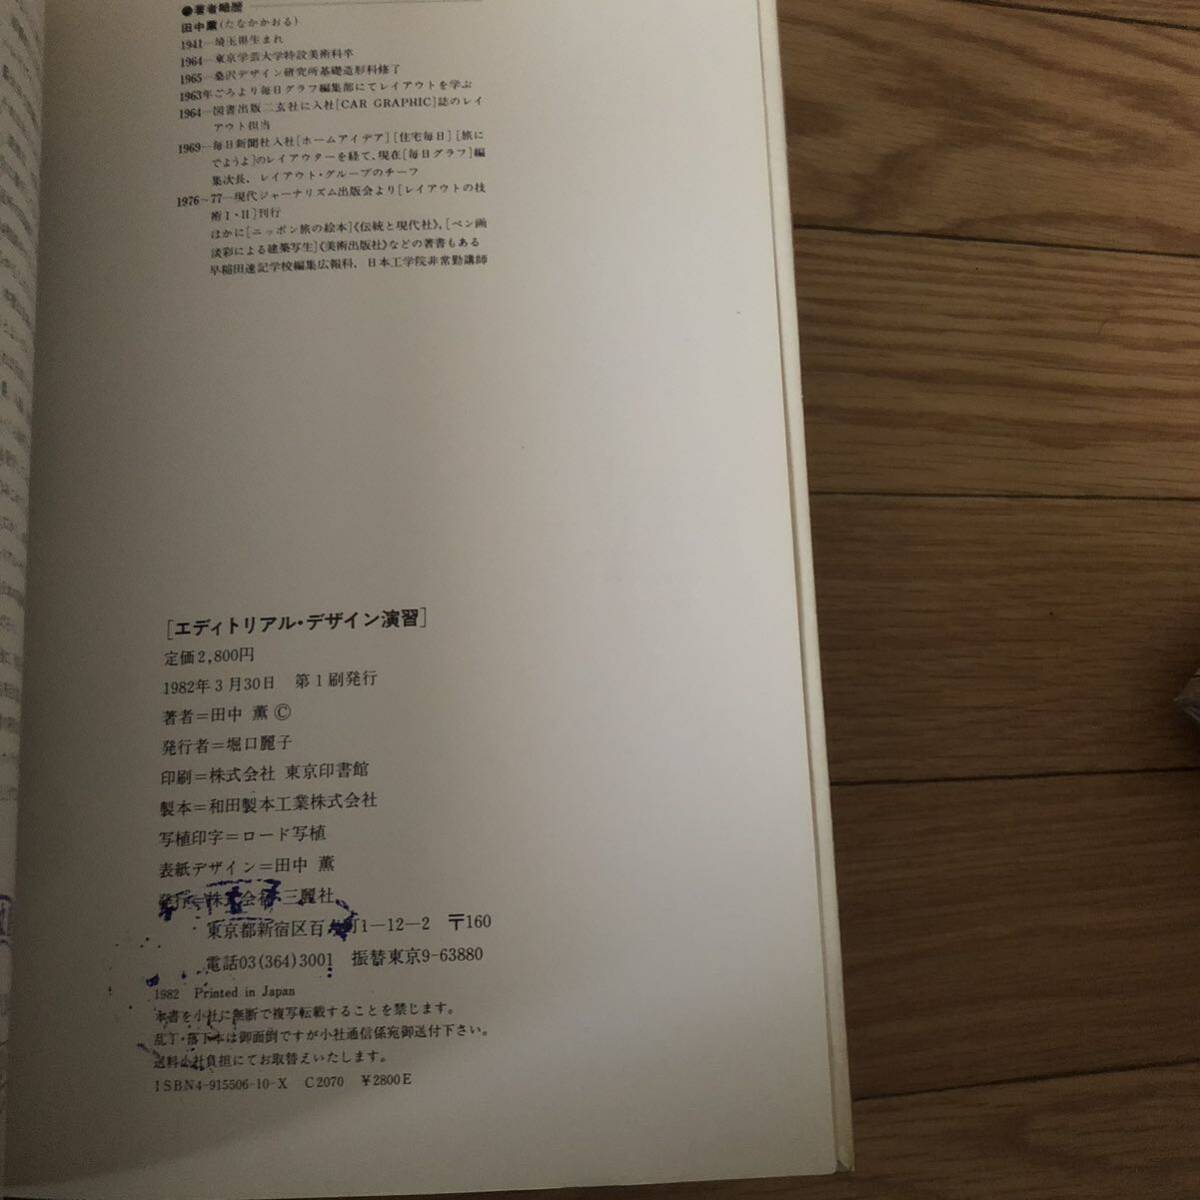 ●著者略歴
田中薫(たなかかおる)
1941—埼玉県生まれ
1964—東京学芸大学特設美術科卒
1965—桑沢デザイン研究所基礎造形科修了
1963年ごろより毎日グラフ編集部にてレイアウトを学ぶ
1964—図書出版二玄社に入社[CAR GRAPHIC]誌のレイ
アウト担当
1969—毎日新聞社入社[ホームアイデア][住宅毎日][旅に
でようよ]のレイアウターを経て、現在[毎日グラフ]編
集次長、レイアウト・グループのチーフ
1976~77—現代ジャーナリズム出版会より[レイアウトの技
術I・II]刊行
ほかに[ニッポン旅の絵本]《伝統と現代社》,[ペン画
淡彩による建築写生]《美術出版社》などの著書もある
早稲田速記学校編集広報科、日本工学院非常勤講師
[エディトリアル・デザイン演習]
定価2,800円
1982年3月30日 第1刷発行
著者=田中 薫©
発行者=堀口麗子
印刷=株式会社 東京印書館
製本=和田製本工業株式会社
写植印字=ロード写植
表紙デザイン=田中 薫
発行=株式会社 三麗社
東京都新宿区百人町1-12-2 〒160
電話03(364)3001 振替東京9-63880
1982 Printed in Japan
本書を小社に無断で複写転載することを禁じます。
乱丁・落丁本は御面倒ですが小社通信係宛御送付下さい。
送料小社負担にてお取替えいたします。
ISBN4-915506-10-X C2070 ¥2800E